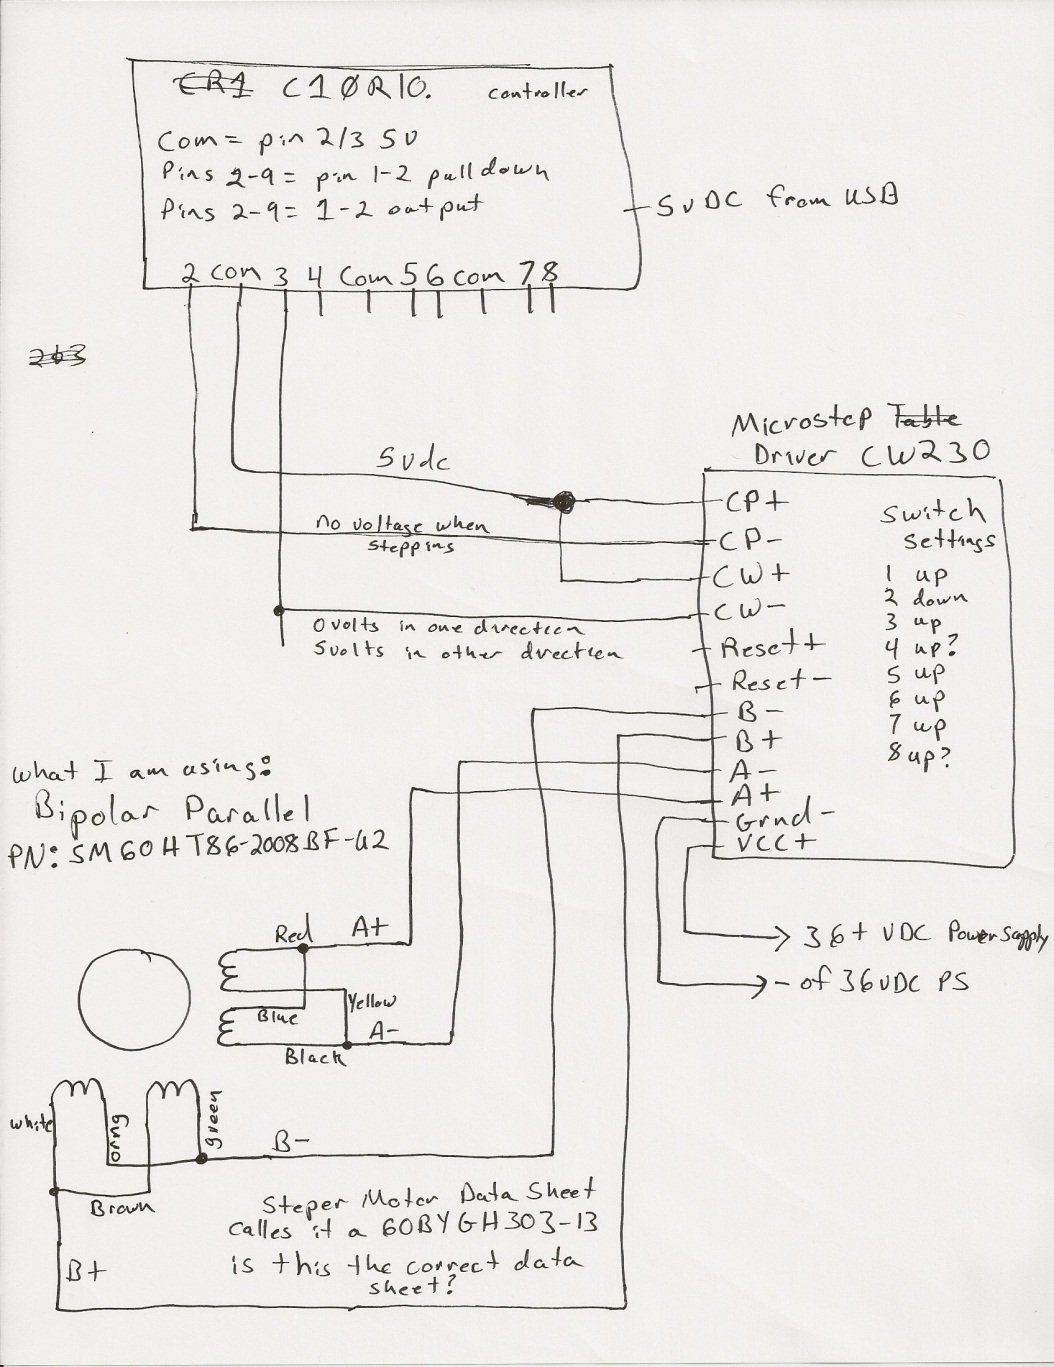 CR1 C10R10. controller
Com = pin 2/3 5v
Pins 2-9 = pin 1-2 pulldown
Pins 2-9 = 1-2 output
5VDC from USB
2 com 3 4 Com 5 6 com 7 8
2&3
Microstep Table
Driver CW230
5vdc
no voltage when
stepping
0volts in one direction
5volts in other direction
CP+
CP-
CW+
CW-
Reset+
Reset-
B-
B+
A-
A+
Grnd-
VCC+
Switch
Settings
1 up
2 down
3 up
4 up?
5 up
6 up
7 up
8 up?
36+ VDC Power supply
- of 36VDC PS
what I am using:
Bipolar Parallel
PN: SM60HT86-2008BF-U2
Red A+
Yellow
Blue
A-
Black
white
orng
green
B-
Brown
B+
Steper Motor Data Sheet
calles it a 60BYGH303-13
is this the correct data
sheet?